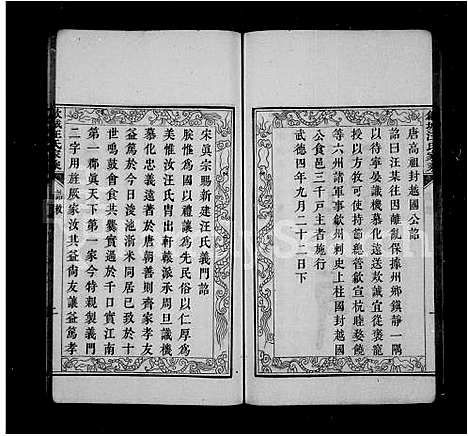 唐高祖封越國公詔
詔曰汪某往因離亂保據州鄉鎮靜一隅
以待寧晏識機慕化遠送款誠宜從褒寵
授以方牧可使持節總管歙宣杭睦婺饒
等六州諸軍事歙州刺史上柱國封越國
公食邑三千戸主者施行
武德四年九月二十二日下
宋真宗賜新建汪氏義門詔
朕惟為國以禮讓為先民俗以仁厚為
美惟汝汪氏胄出軒轅派承周旦識機
慕化忠義遠者於唐朝善則齊家孝友
益篤於今日淡池淅米同居已致於十
世鳴鼓會食共爨實過於千口實江南
第一郡真天下第一家今特親製義門
二字用旌厥家汝其益尚友讓益篤孝